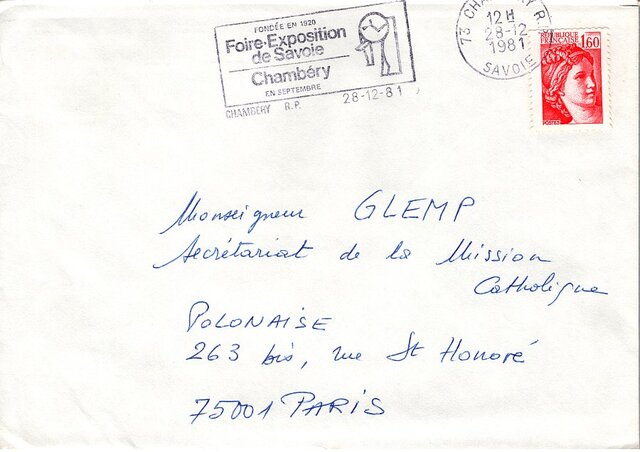 FONDÉE EN 1920
Foire-Exposition
de Savoie
Chambéry
EN SEPTEMBRE
CHAMBERY R.P.
28-12-81
73 CHAMBERY R.P.
12 H
28-12
1981
SAVOIE
RÉPUBLIQUE
FRANÇAISE
1,60
POSTES
Monseigneur GLEMP
Secrétariat de la Mission
Catholique
POLONAISE
263 bis, rue St Honoré
75001 PARIS